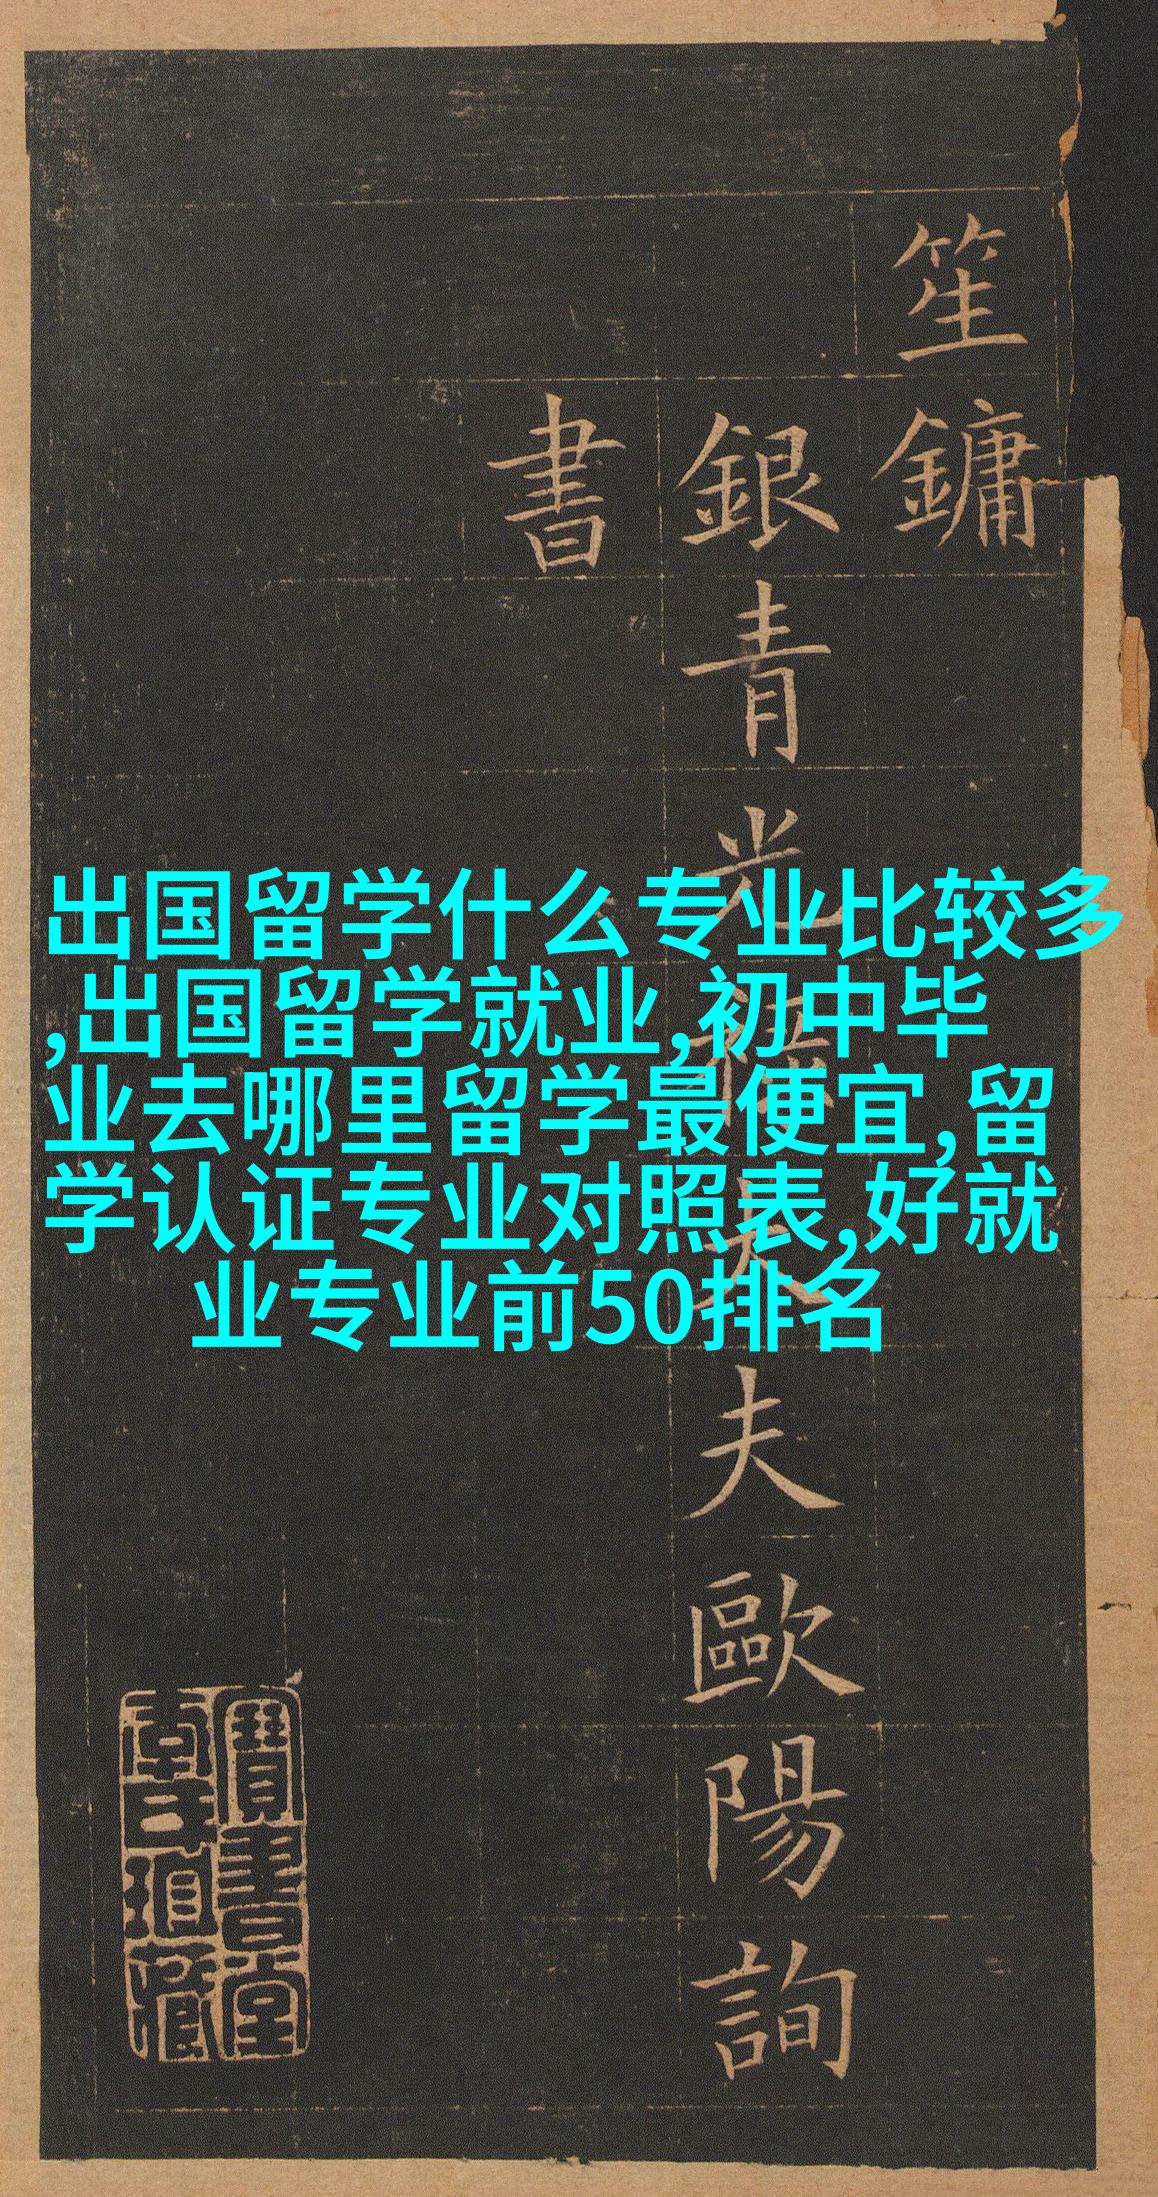 笙鏞
銀青光祿大夫歐陽詢
書
出国留学什么专业比较多
,出国留学就业,初中毕
业去哪里留学最便宜,留
学认证专业对照表,好就
业专业前50排名